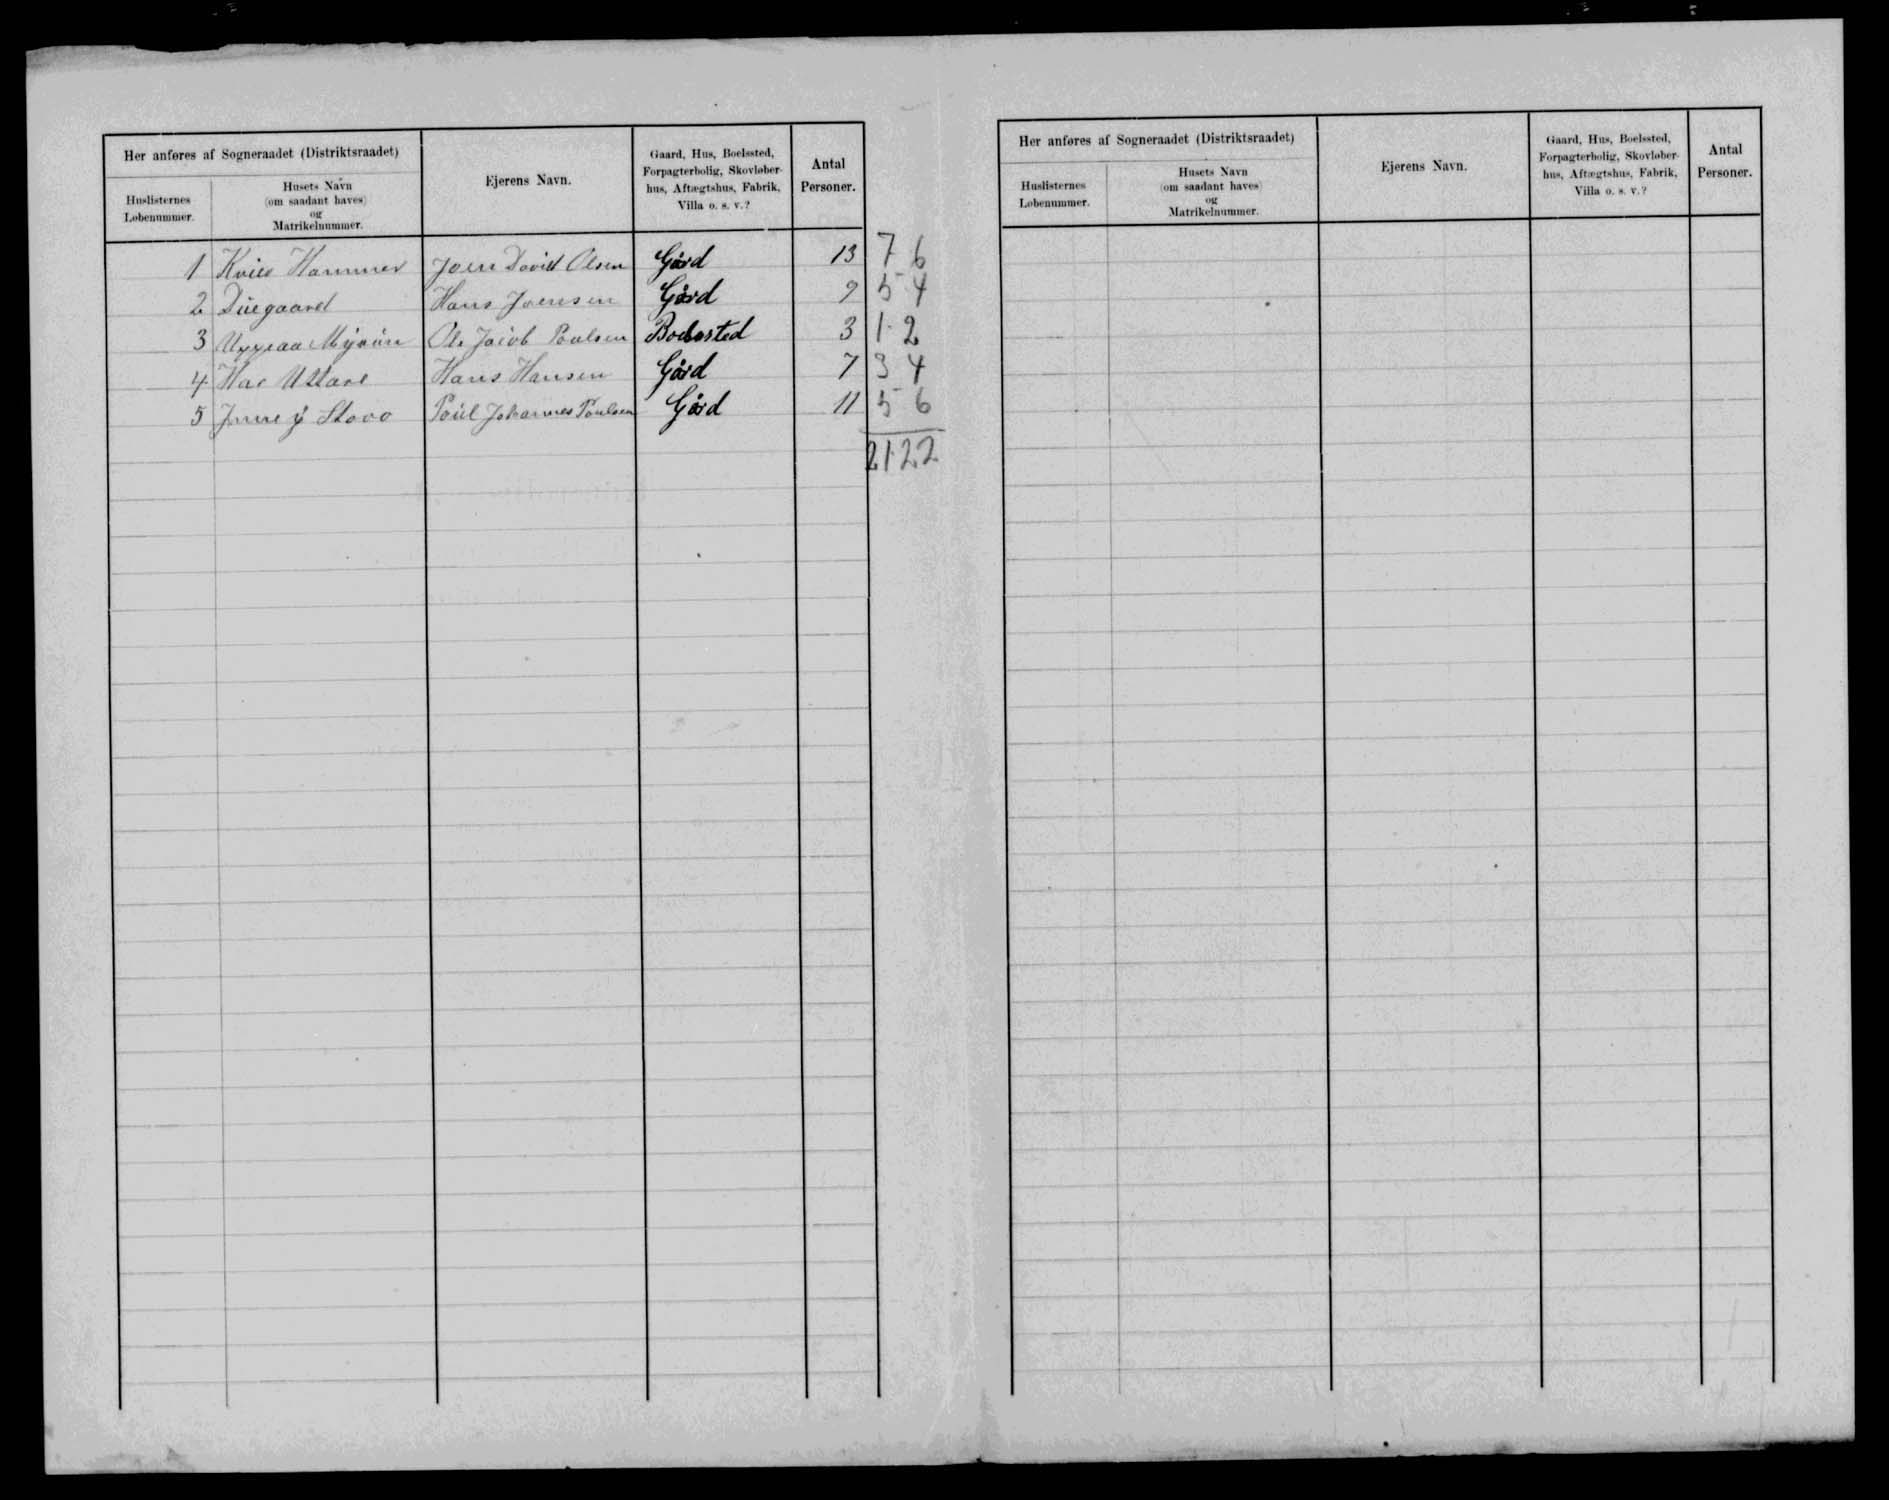 Her anføres af Sogneraadet (Distriktsraadet)
Huslisternes Løbenummer.
Husets Navn (om saadant haves) og Matrikelnummer.
Ejerens Navn.
Gaard, Hus, Boelssted, Forpagterbolig, Skovløberhus, Aftægtshus, Fabrik, Villa o. s. v.?
Antal Personer.
1 Hammer Joen David Olsen Gård 13 7 6
2 Duegaard Hans Joensen Gård 9 5 4
3 Uppraa Ole Jacob Poulsen Boelssted 3 1 2
4 Hans Hansen Gård 7 3 4
5 Stovo Poul Johannes Poulsen Gård 11 5 6
21 22
Her anføres af Sogneraadet (Distriktsraadet)
Huslisternes Løbenummer.
Husets Navn (om saadant haves) og Matrikelnummer.
Ejerens Navn.
Gaard, Hus, Boelssted, Forpagterbolig, Skovløberhus, Aftægtshus, Fabrik, Villa o. s. v.?
Antal Personer.